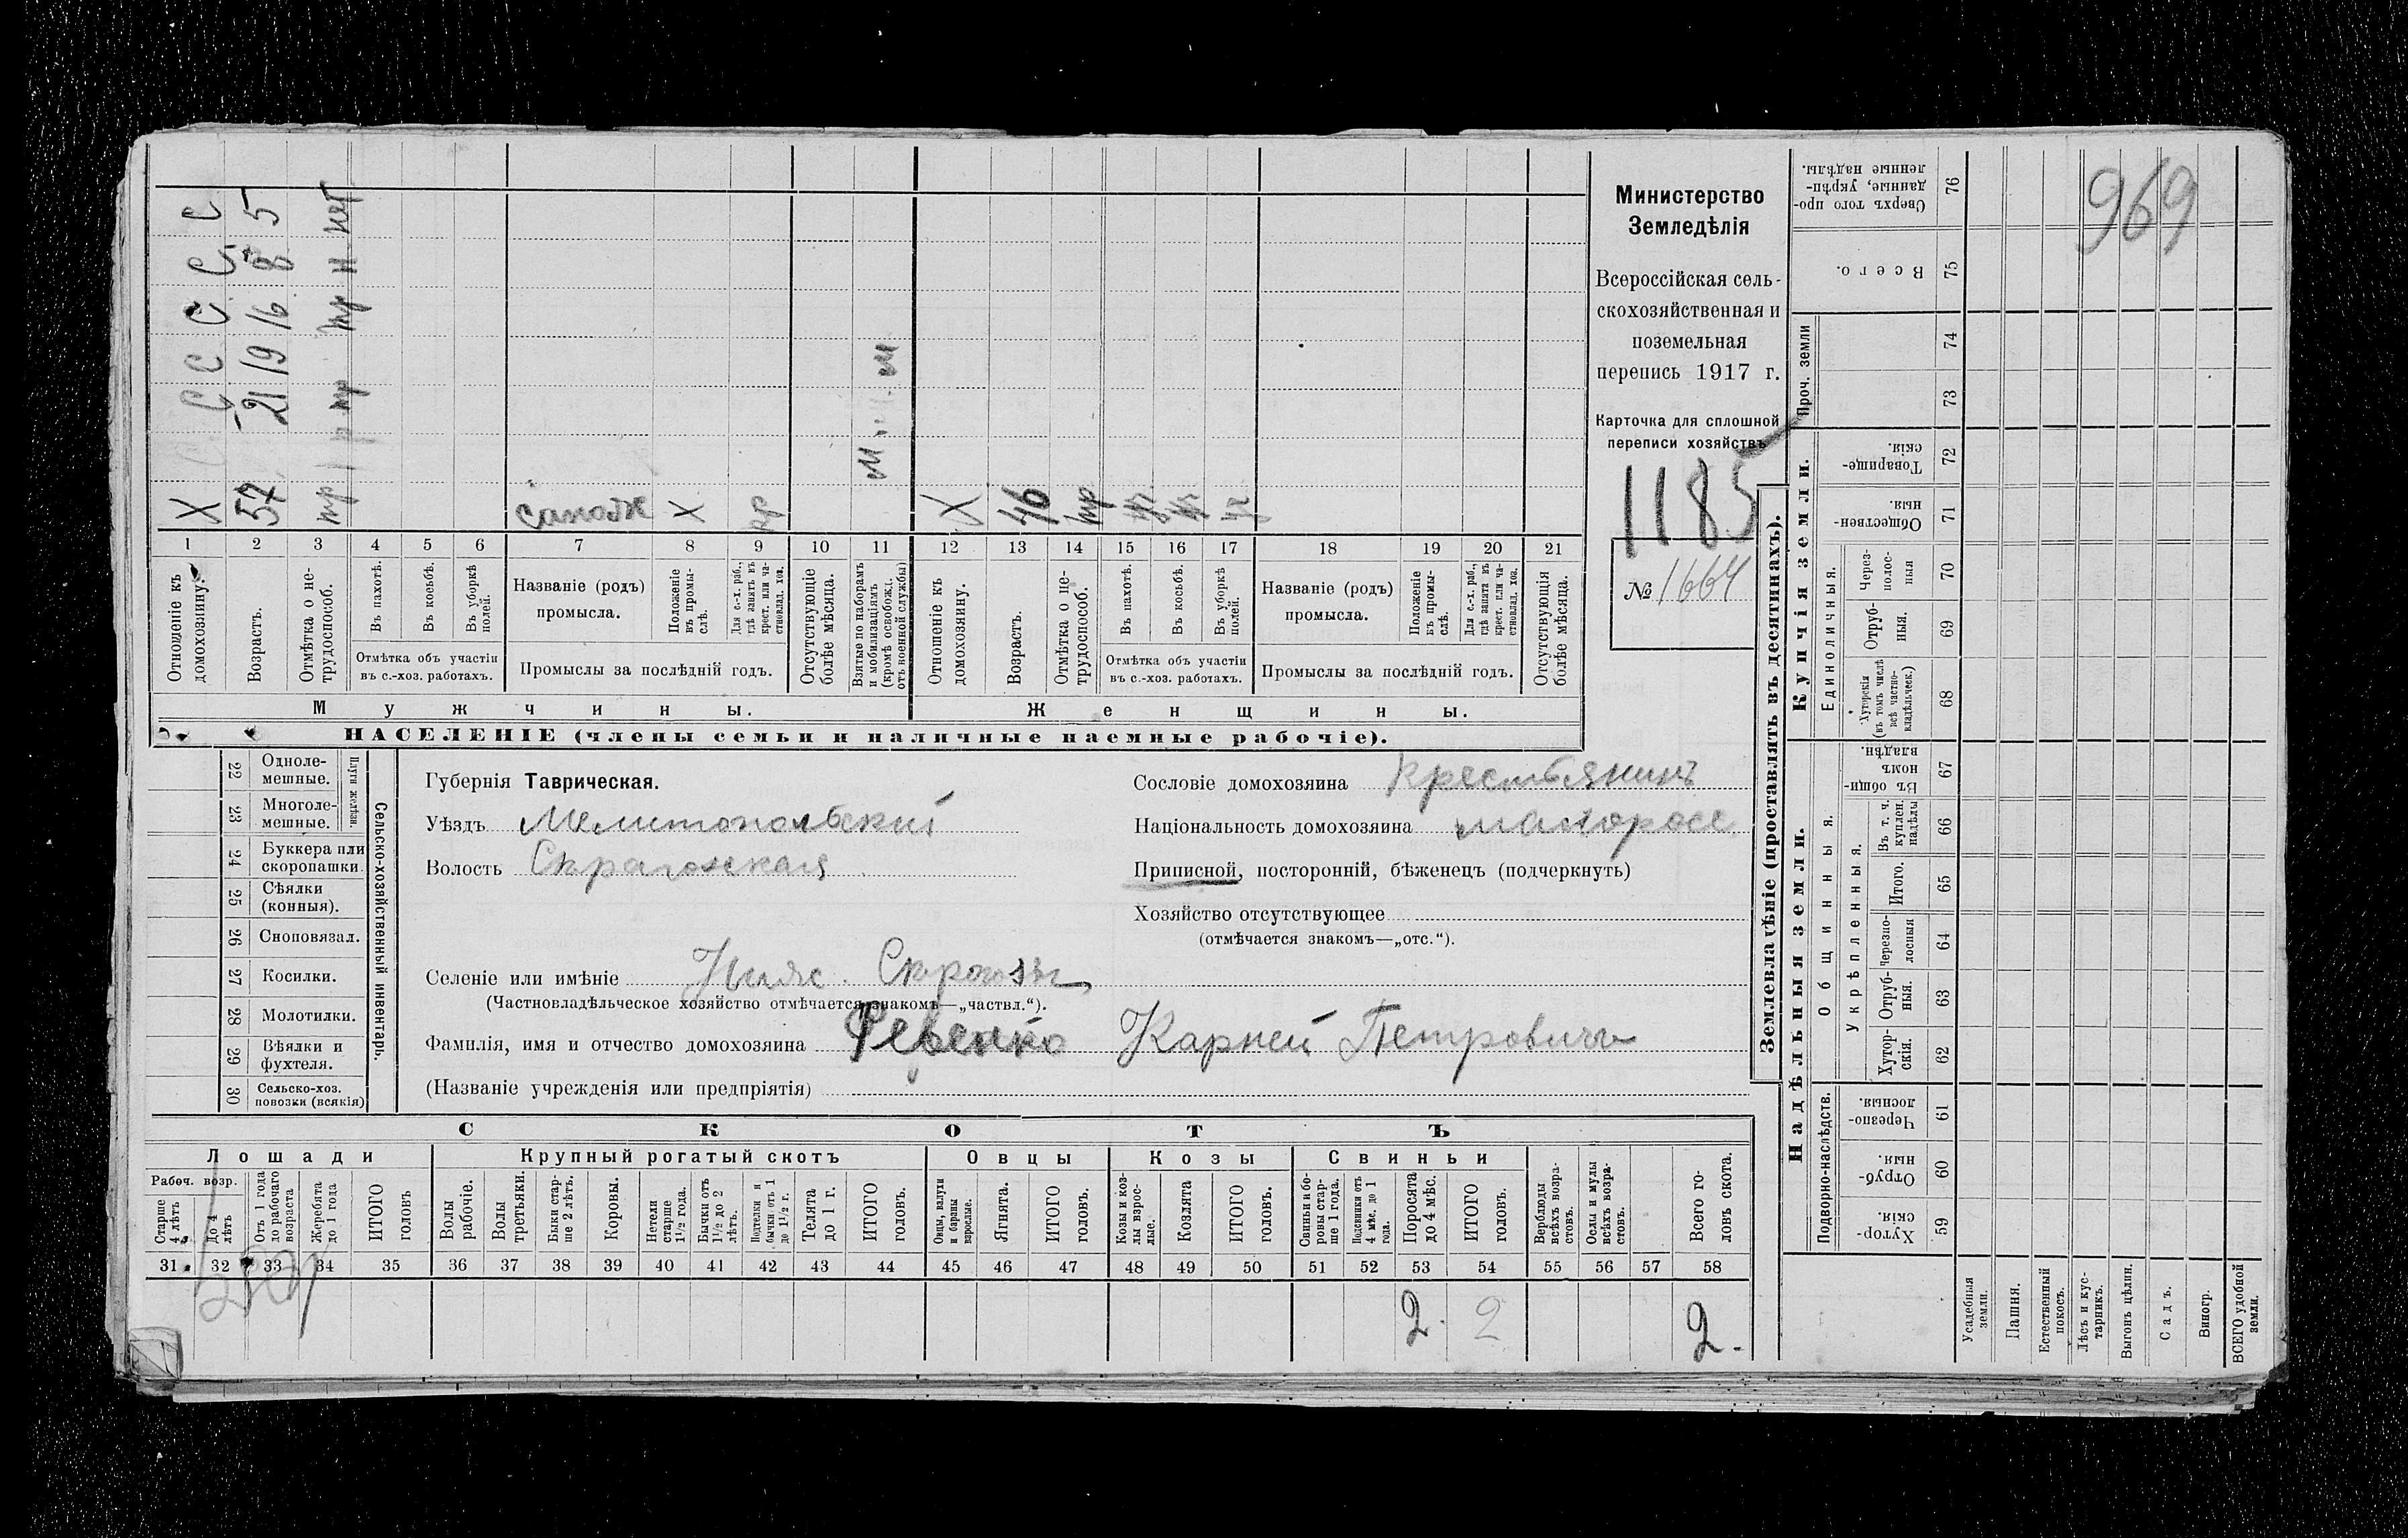 Министерство
Земледѣлія
Всероссійская сель-
скохозяйственная и
поземельная
перепись 1917 г.
Карточка для сплошной
переписи хозяйствъ
1185
№ 1664
969
С С С С С
5
8
16
19
21
нет
н
пр
пр
р
м
м
Х 57 пр сапожн Х Х 46 пр
1 2 3 4 5 6 7 8 9 10 11 12 13 14 15 16 17 18 19 20 21
Отношеніе къ домохозяину.
Возрастъ.
Отмѣтка о не-трудоспособ.
Въ пахотѣ.
Въ косьбѣ.
Въ уборкѣ полей.
Отмѣтка объ участіи
въ с.-хоз. работахъ.
Названіе (родъ)
промысла.
Положеніе въ промы-слѣ.
Для с.-х. раб., гдѣ занятъ въ крест. или ча-стновлад. хоз.
Промыслы за послѣдній годъ.
Отсутствующіе болѣе мѣсяца.
Взятые по наборамъ и мобилизаціямъ (кромѣ освобожд. отъ военной службы)
Отношеніе къ домохозяину.
Возрастъ.
Отмѣтка о не-трудоспособ.
Въ пахотѣ.
Въ косьбѣ.
Въ уборкѣ полей.
Отмѣтка объ участіи
въ с.-хоз. работахъ.
Названіе (родъ)
промысла.
Положеніе въ промы-слѣ.
Для с.-х. раб., гдѣ занята въ крест. или ча-стновлад. хоз.
Промыслы за послѣдній годъ.
Отсутствующія болѣе мѣсяца.
Мужчины.
Женщины.
НАСЕЛЕНІЕ (члены семьи и наличные наемные рабочіе).
22 Одноле-мешные.
23 Многоле-мешные.
Плуги желѣзн.
24 Буккера или скоропашки.
25 Сѣялки (конныя).
26 Сноповязал.
27 Косилки.
28 Молотилки.
29 Вѣялки и фухтеля.
30 Сельско-хоз. повозки (всякія)
Сельско-хозяйственный инвентарь.
Губернія Таврическая.
Уѣздъ Мелитопольскій
Волость
Селеніе или имѣніе Нижн. Сѣрогозы
(Частновладѣльческое хозяйство отмѣчается знакомъ—„частвл.“).
Фамилія, имя и отчество домохозяина Карней Петровичъ
(Названіе учрежденія или предпріятія)
Сословіе домохозяина Крестьянинъ
Національность домохозяина малоросс
Приписной, посторонній, бѣженец (подчеркнуть)
Хозяйство отсутствующее
(отмѣчается знакомъ—„отс.“).
СКОТЪ
Лошади
Крупный рогатый скотъ
Овцы
Козы
Свиньи
Рабоч. возр.
Старше 4 лѣтъ
До 4 лѣтъ
Отъ 1 года до рабочаго возраста
Жеребята до 1 года
ИТОГО головъ
Волы рабочіе.
Волы третьяки.
Быки стар-ше 2 лѣтъ.
Коровы.
Нетели старше 1½ года.
Бычки отъ 1½ до 2 лѣтъ.
Подтелки и бычки отъ 1 до 1½ г.
Телята до 1 г.
ИТОГО головъ.
Овцы, валухи и бараны взрослые.
Ягнята.
ИТОГО головъ.
Козы и коз-лы взрос-лые.
Козлята
ИТОГО головъ.
Свиньи и бо-ровы стар-ше 1 года.
Подсвинки отъ 4 мѣс. до 1 года.
Поросята до 4 мѣс.
ИТОГО головъ.
Верблюды всѣхъ возра-стовъ.
Ослы и мулы всѣхъ возра-стовъ.
Всего го-ловъ скота.
31 32 33 34 35 36 37 38 39 40 41 42 43 44 45 46 47 48 49 50 51 52 53 54 55 56 57 58
2. 2 2.
Землевладѣніе (проставлять въ десятинахъ).
Надѣльныя земли.
Купчія земли.
Проч. земли
Подворно-наслѣдств.
Общинныя.
Укрѣпленныя.
Единоличныя.
Сверхъ того про-данные, укрѣп-ленные надѣлы. 76
Всего. 75
74
73
Товарище-скія. 72
Обществен-ныя. 71
Через-полос-ныя 70
Отруб-ныя. 69
Хуторскія (въ томъ числѣ всѣ частно-владѣльческ.) 68
Въ общин-номъ владѣн. 67
Въ т. ч. куплен. надѣлы 66
Итого. 65
Черезпо-лосныя 64
Отруб-ныя. 63
Хутор-скія. 62
Черезпо-лосныя. 61
Отруб-ныя. 60
Хутор-скія. 59
Усадебныя земли.
Пашня.
Естественный покосъ.
Лѣсъ и кус-тарникъ.
Выгонъ цѣлин.
Садъ.
Виногр.
ВСЕГО удобной земли.